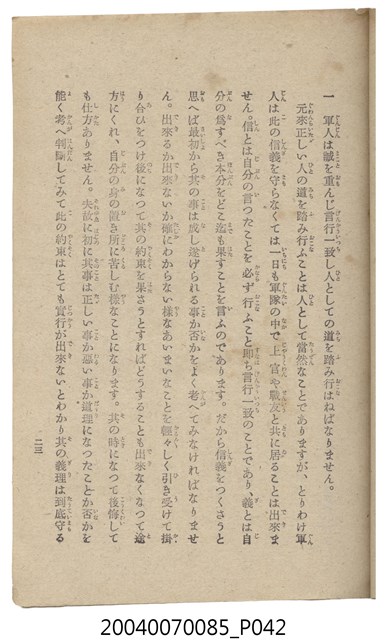 一　軍人は誠を重んじ言行一致し人としての道を踏み行はねばなりません。
元來正しい人の道を踏み行ふことは人として當然なことでありますが、とりわけ軍
人は此の信義を守らなくては一日も軍隊の中で上官や戰友と共に居ることは出來ま
せん。信とは自分の言つたことを必ず行ふこと卽ち言行一致のことであり、義とは自
分の爲すべき本分をどこ迄も果すことを言ふのであります。だから信義をつくさうと
思へば最初から其の事は成し遂げられる事か否かをよく考へてみなければなりませ
ん。出來るか出來ないか確にわからない樣なあいまいなことを輕々しく引き受けて掛
り合ひをつけ後になつて其の約束を果さうとすればどうすることも出來なくなつて途
方にくれ、自分の身の置き所に苦しむ樣なことになります。其の時になつて後悔して
も仕方ありません。夫故に初に其事は正しい事か惡い事か道理になつたことか否かを
能く考へ判斷してみて此の約束はとても實行が出來ないとわかり其の義理は到底守る
二三
20040070085_P042